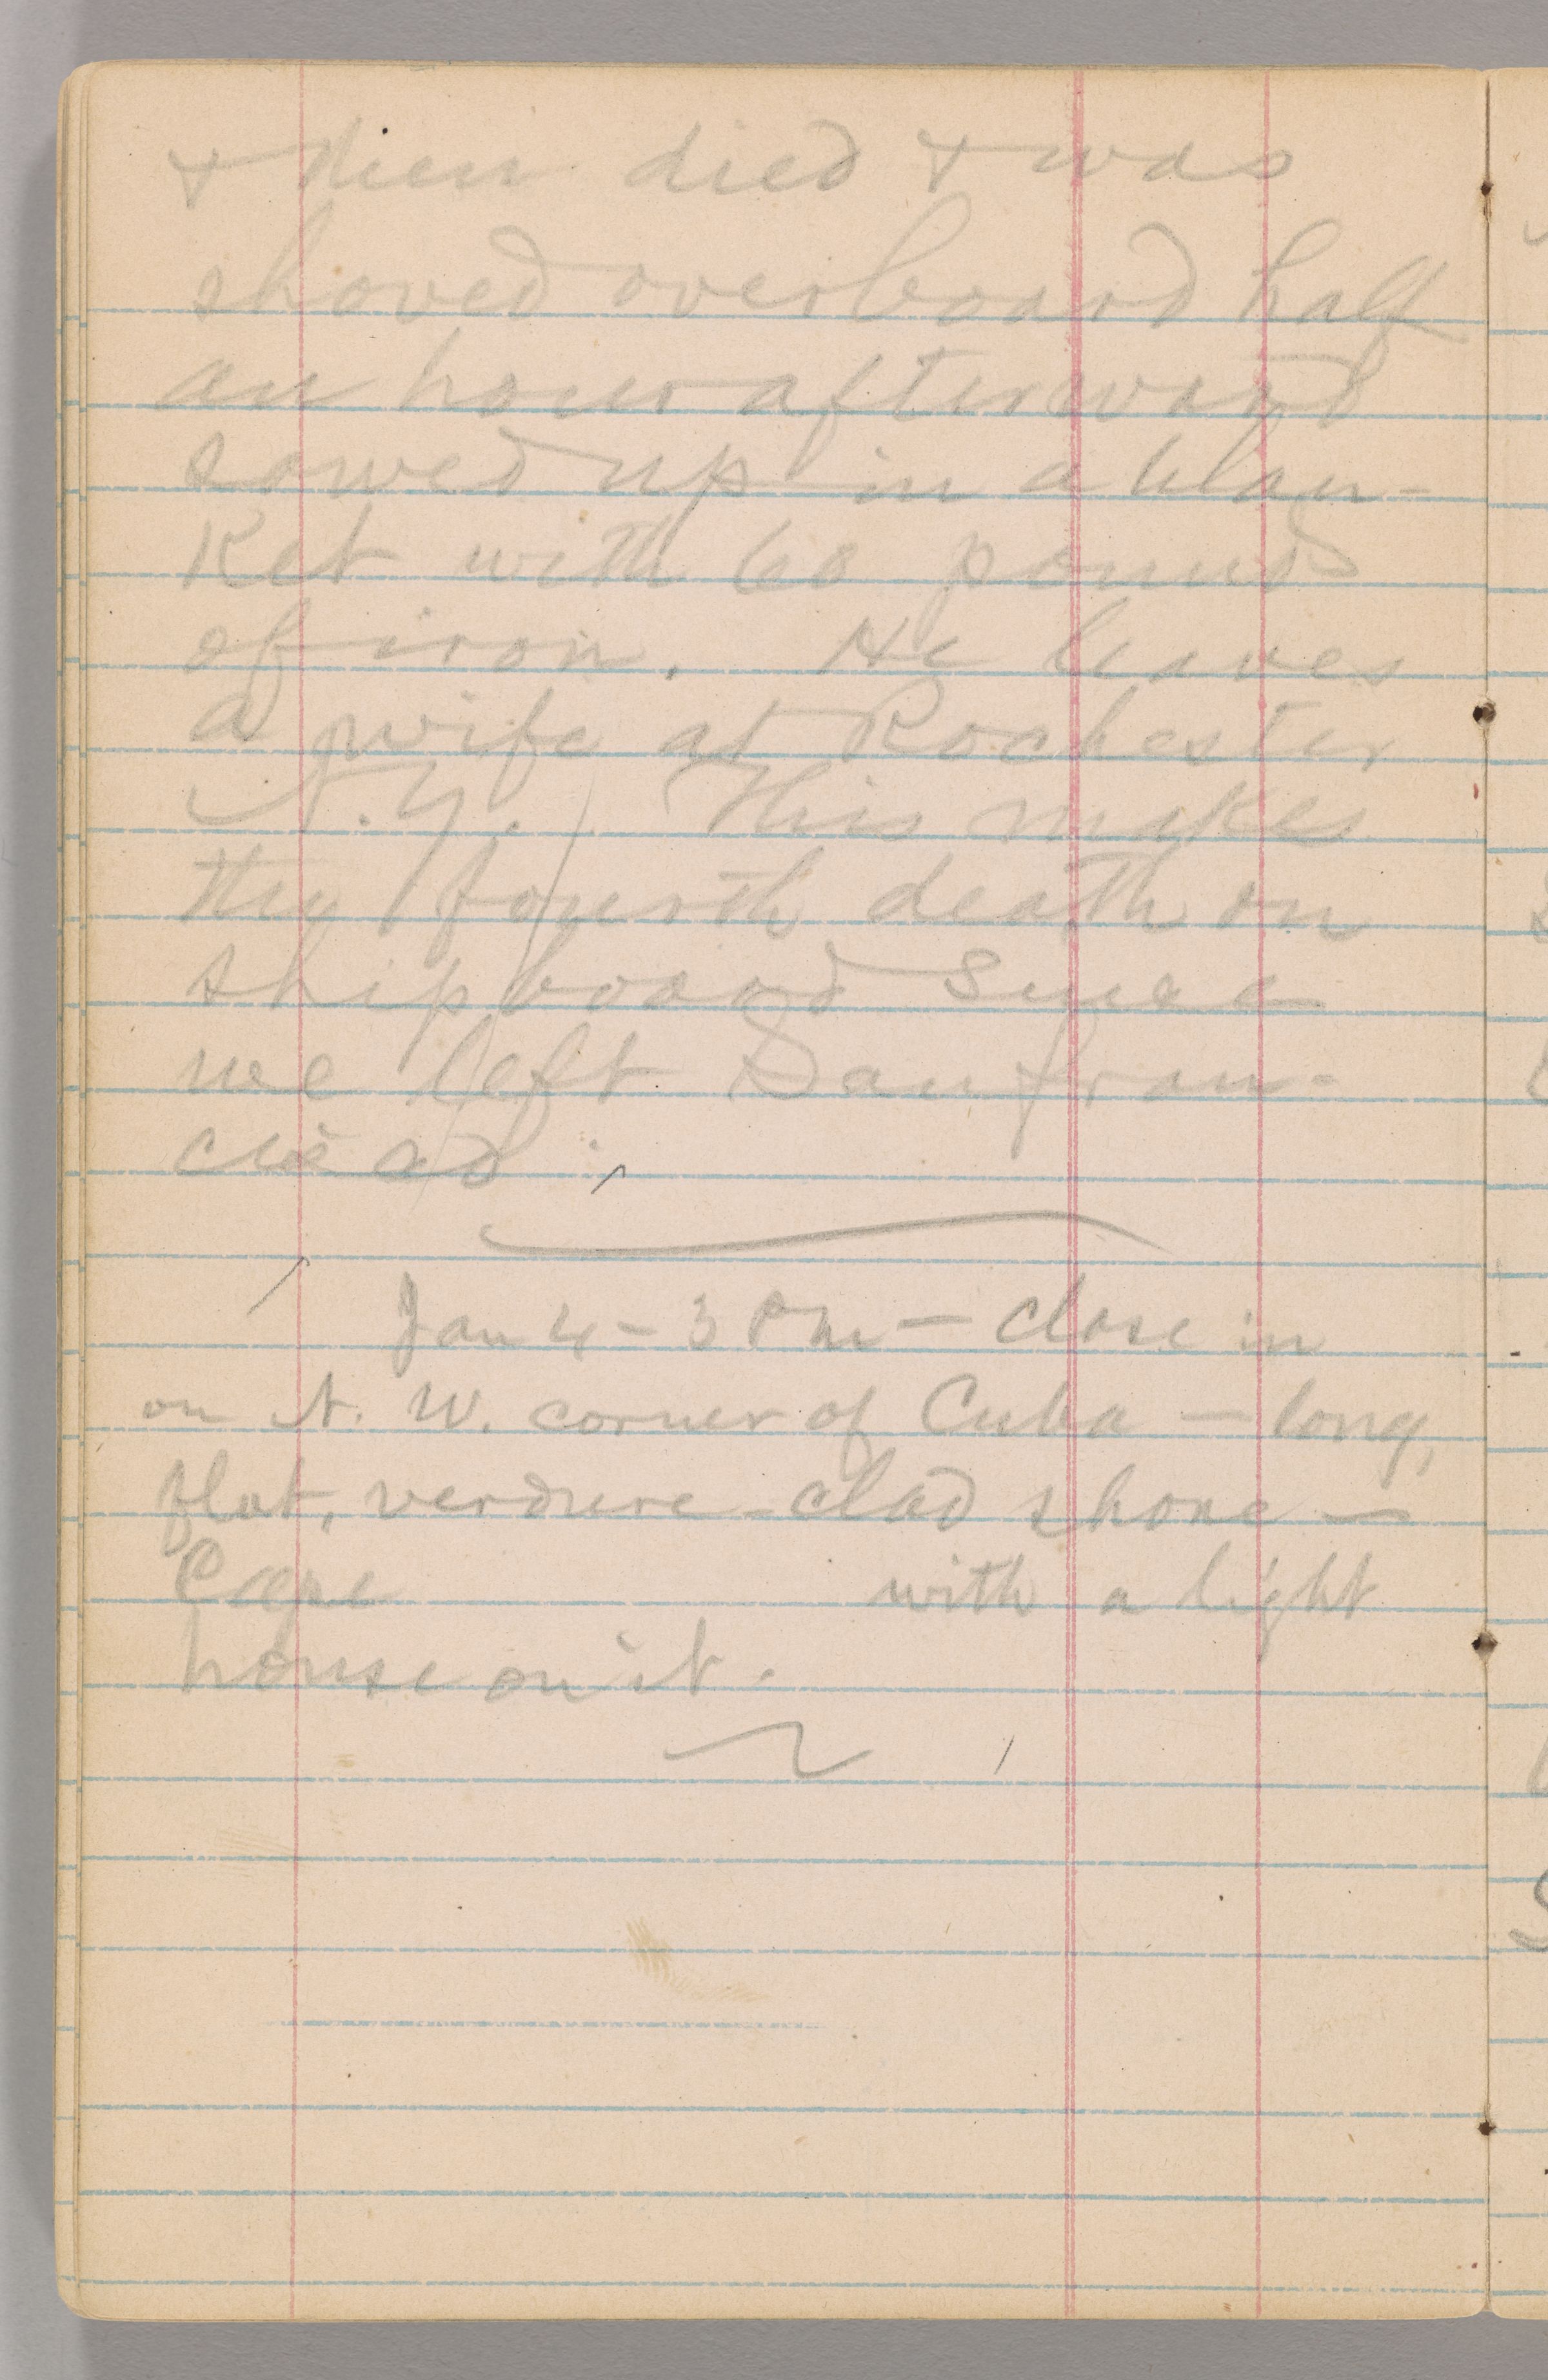 & then died & was
shoved overboard half
an hour afterward
sowed up in a blan-
ket with 60 pounds
of iron. He leaves
a wife at Rochester
N.Y. This makes
the fourth death on
shipboard since
we left San Fran-
cisco.
Jan 4 - 3 PM — close in
on N. W. corner of Cuba — long,
flat, verdure-clad shore —
Cape with a light
house on it.